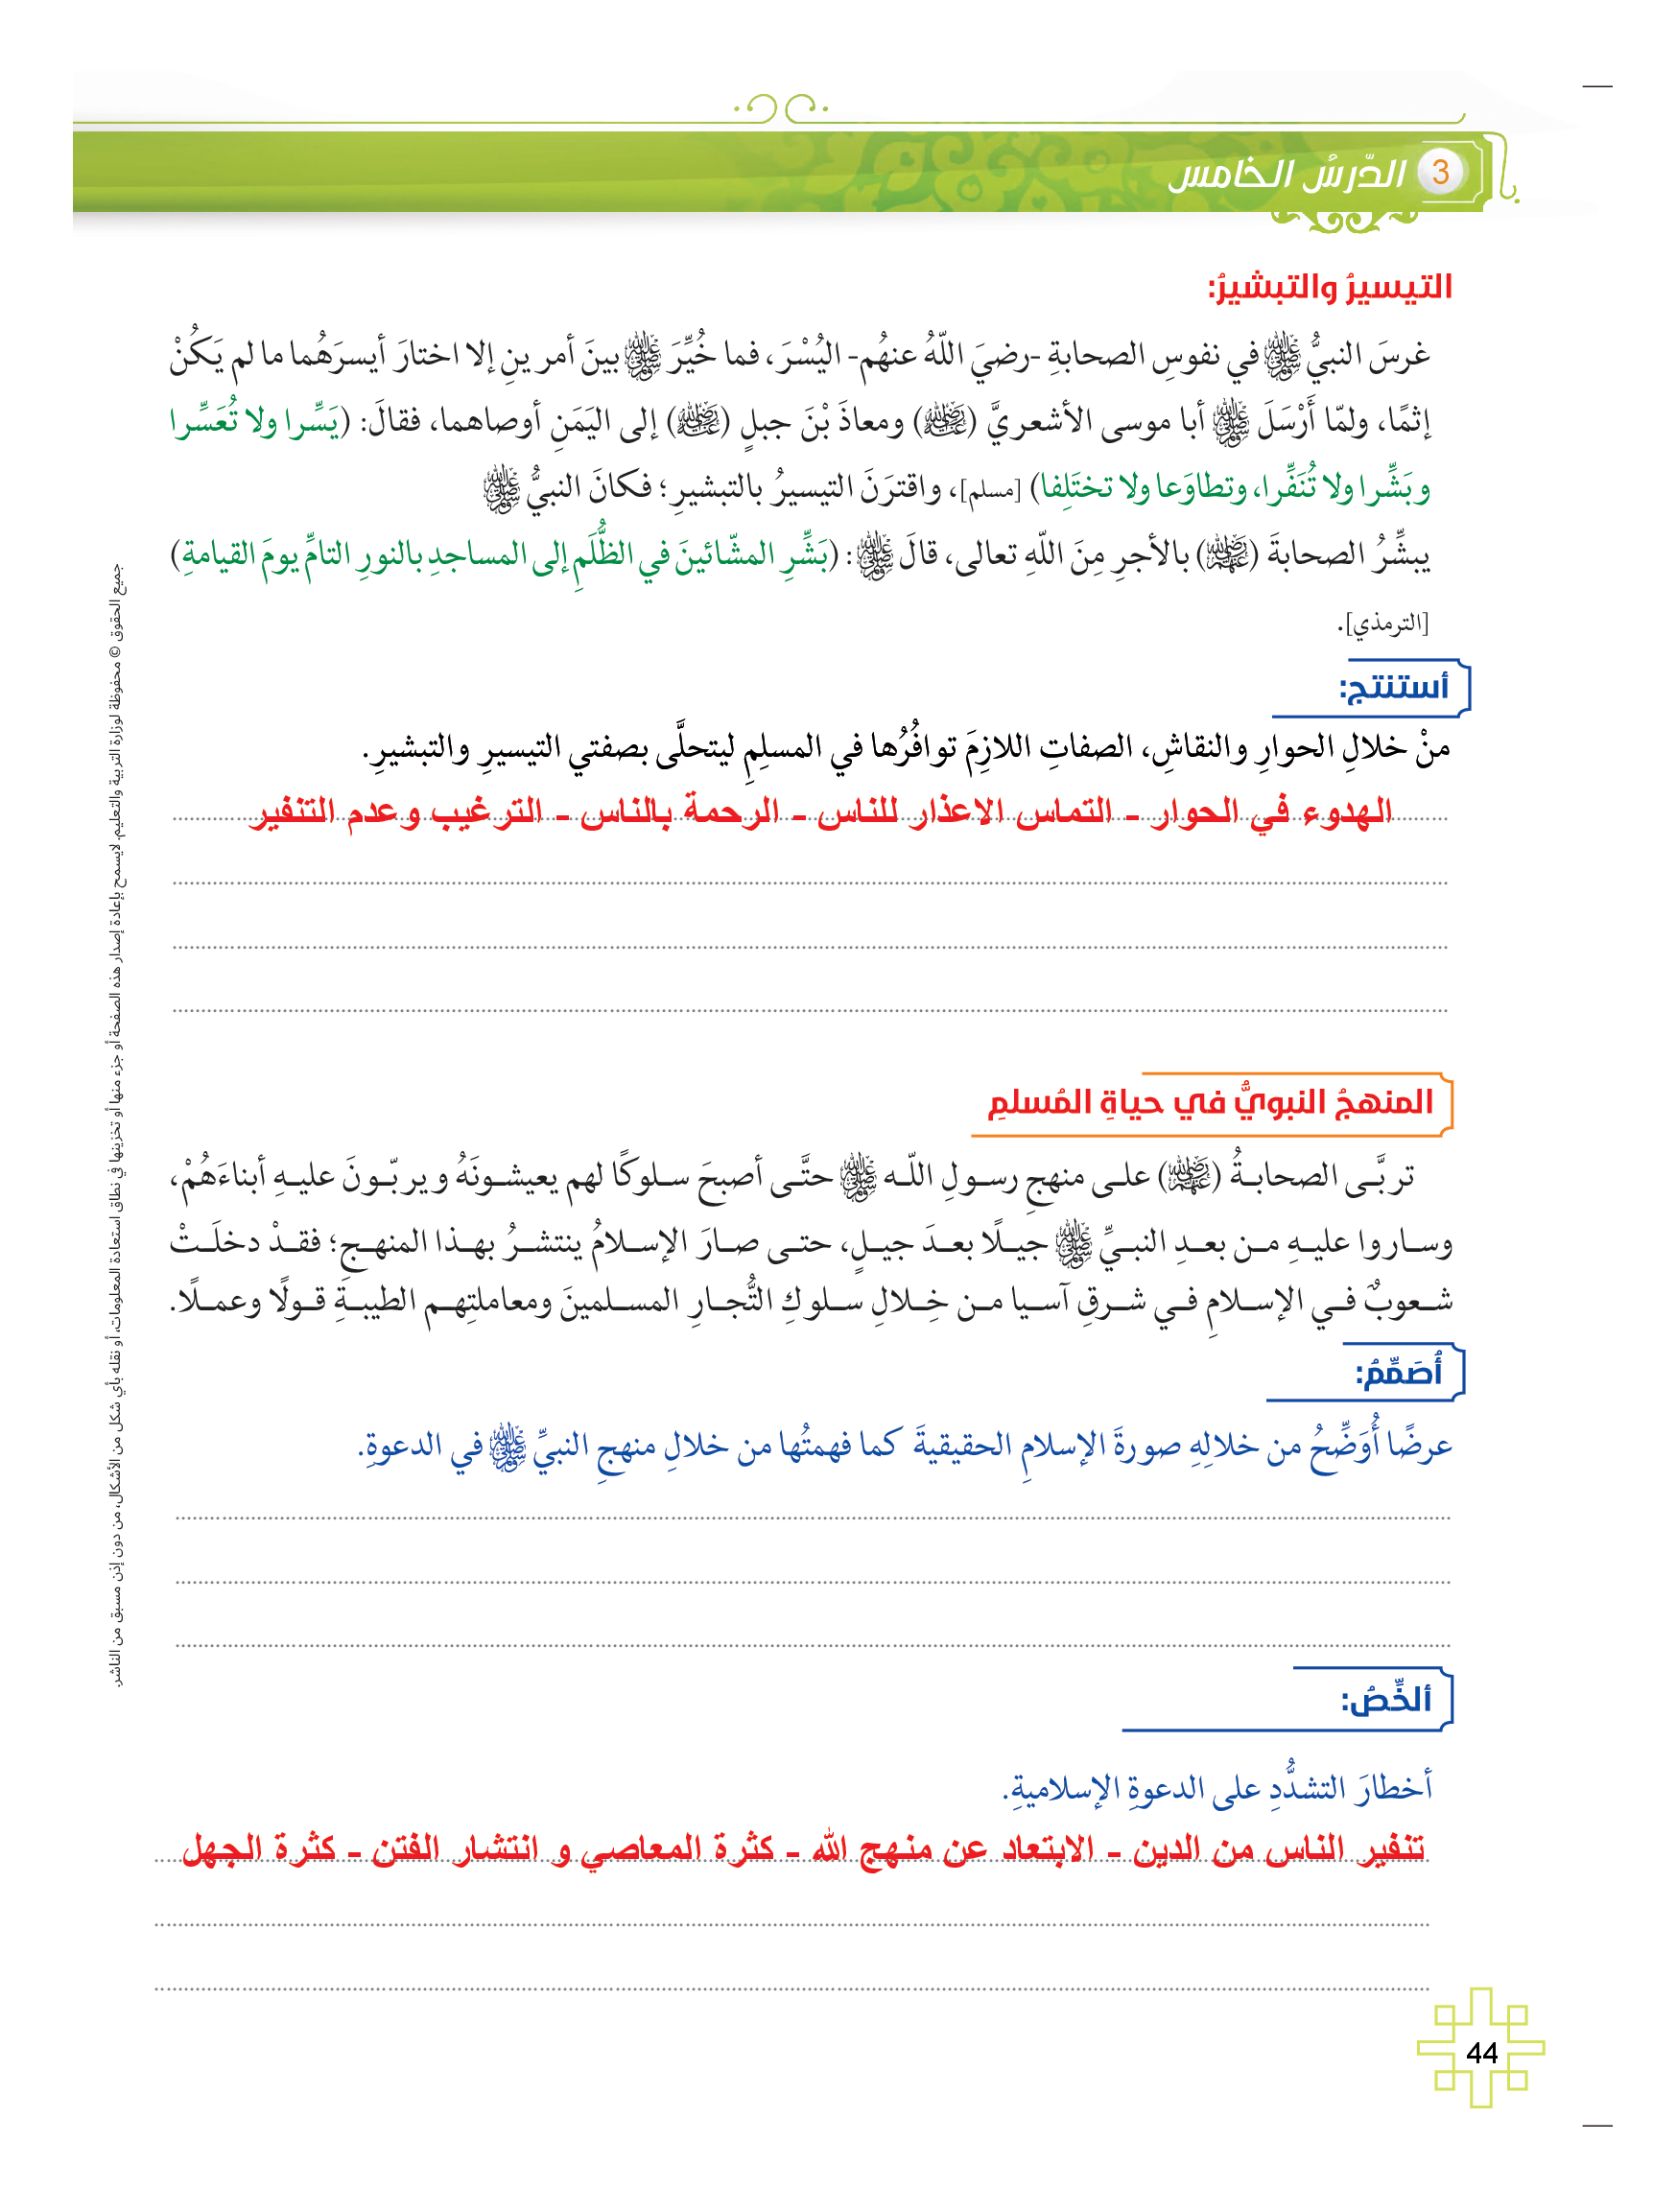 3 الدّرسُ الخامس
التيسيرُ والتبشيرُ:
غرسَ النبيُّ ﷺ في نفوسِ الصحابةِ -رضيَ اللّهُ عنهُم- اليُسْرَ، فما خُيِّرَ ﷺ بينَ أمرينِ إلا اختارَ أيسرَهُما ما لم يَكُنْ
إثمًا، ولمّا أَرْسَلَ ﷺ أبا موسى الأشعريَّ (رضي الله عنه) ومعاذَ بْنَ جبلٍ (رضي الله عنه) إلى اليَمَنِ أوصاهما، فقالَ: (يَسِّرا ولا تُعَسِّرا
وبَشِّرا ولا تُنَفِّرا، وتطاوَعا ولا تختَلِفا) [مسلم]، واقترَنَ التيسيرُ بالتبشيرِ؛ فكانَ النبيُّ ﷺ
يبشِّرُ الصحابةَ (رضي الله عنهم) بالأجرِ مِنَ اللّهِ تعالى، قالَ ﷺ: (بَشِّرِ المشّائينَ في الظُّلَمِ إلى المساجدِ بالنورِ التامِّ يومَ القيامةِ)
[الترمذي].
أستنتج:
منْ خلالِ الحوارِ والنقاشِ، الصفاتِ اللازِمَ توافُرُها في المسلِمِ ليتحلَّى بصفتي التيسيرِ والتبشيرِ.
الهدوء في الحوار - التماس الاعذار للناس - الرحمة بالناس - الترغيب وعدم التنفير
المنهجُ النبويُّ في حياةِ المُسلمِ
تربَّى الصحابةُ (رضي الله عنهم) على منهجِ رسولِ اللّه ﷺ حتَّى أصبحَ سلوكًا لهم يعيشونَهُ ويربّونَ عليهِ أبناءَهُمْ،
وساروا عليهِ من بعدِ النبيِّ ﷺ جيلًا بعدَ جيلٍ، حتى صارَ الإسلامُ ينتشرُ بهذا المنهجِ؛ فقدْ دخلَتْ
شعوبٌ في الإسلامِ في شرقِ آسيا من خِلالِ سلوكِ التُّجارِ المسلمينَ ومعاملتِهم الطيبةِ قولًا وعملًا.
أُصَمِّمُ:
عرضًا أُوَضِّحُ من خلالِهِ صورةَ الإسلامِ الحقيقيةَ كما فهمتُها من خلالِ منهجِ النبيِّ ﷺ في الدعوةِ.
ألخِّصُ:
أخطارَ التشدُّدِ على الدعوةِ الإسلاميةِ.
تنفير الناس من الدين - الابتعاد عن منهج الله - كثرة المعاصي و انتشار الفتن - كثرة الجهل
44
جميع الحقوق © محفوظة لوزارة التربية والتعليم. لايسمح بإعادة إصدار هذه الصفحة أو جزء منها أو تخزينها في نطاق استعادة المعلومات، أو نقله بأي شكل من الأشكال، من دون إذن مسبق من الناشر.